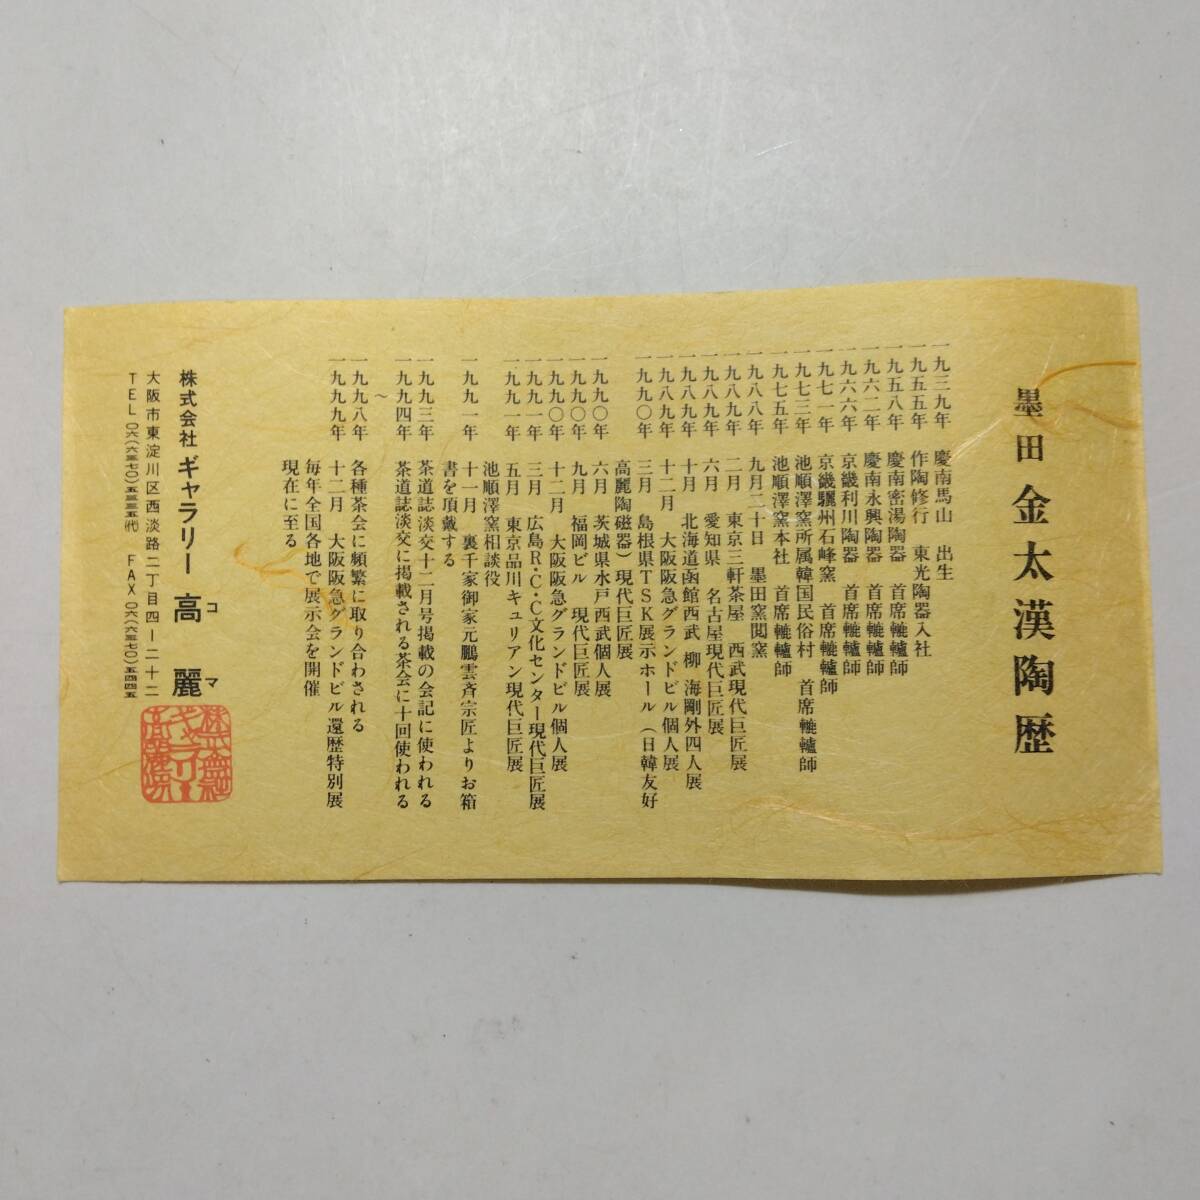 墨田 金太漢陶歴
一九三九年 慶南馬山 出生
一九五五年 作陶修行 東光陶器入社
一九五八年 慶南密湯陶器 首席轆轤師
一九六二年 慶南永興陶器 首席轆轤師
一九六六年 京畿利川陶器 首席轆轤師
一九七一年 京畿驪州石峰窯 首席轆轤師
一九七三年 池順澤窯所属韓国民俗村 首席轆轤師
一九七五年 池順澤窯本社 首席轆轤師
一九八八年 九月二十日 墨田窯開窯
一九八九年 二月 東京三軒茶屋 西武現代巨匠展
一九八九年 六月 愛知県 名古屋現代巨匠展
一九八九年 十月 北海道函館西武 柳 海剛外四人展
一九八九年 十二月 大阪阪急グランドビル個人展
一九九〇年 三月 島根県TSK展示ホール(日韓友好
高麗陶磁器)現代巨匠展
一九九〇年 六月 茨城県水戸西武個人展
一九九〇年 九月 福岡ビル 現代巨匠展
一九九〇年 十二月 大阪阪急グランドビル個人展
一九九一年 三月 広島R・C・C文化センター現代巨匠展
一九九一年 五月 東京品川キュリアン現代巨匠展
池順澤窯相談役
一九九一年 十一月 裏千家御家元鵬雲斉宗匠よりお箱
書を頂戴する
一九九三年 茶道誌淡交十二月号掲載の会記に使われる
一九九四年 茶道誌淡交に掲載される茶会に十回使われる
～
一九九八年 各種茶会に頻繁に取り合わされる
一九九九年 十二月 大阪阪急グランドビル還歴特別展
毎年全国各地で展示会を開催
現在に至る
株式会社 ギャラリー 高麗
コマ
大阪市東淀川区西淡路二丁目四ー二十二
TEL 〇六(六三七〇)五三三五㈹ FAX 〇六(六三七〇)五四四五